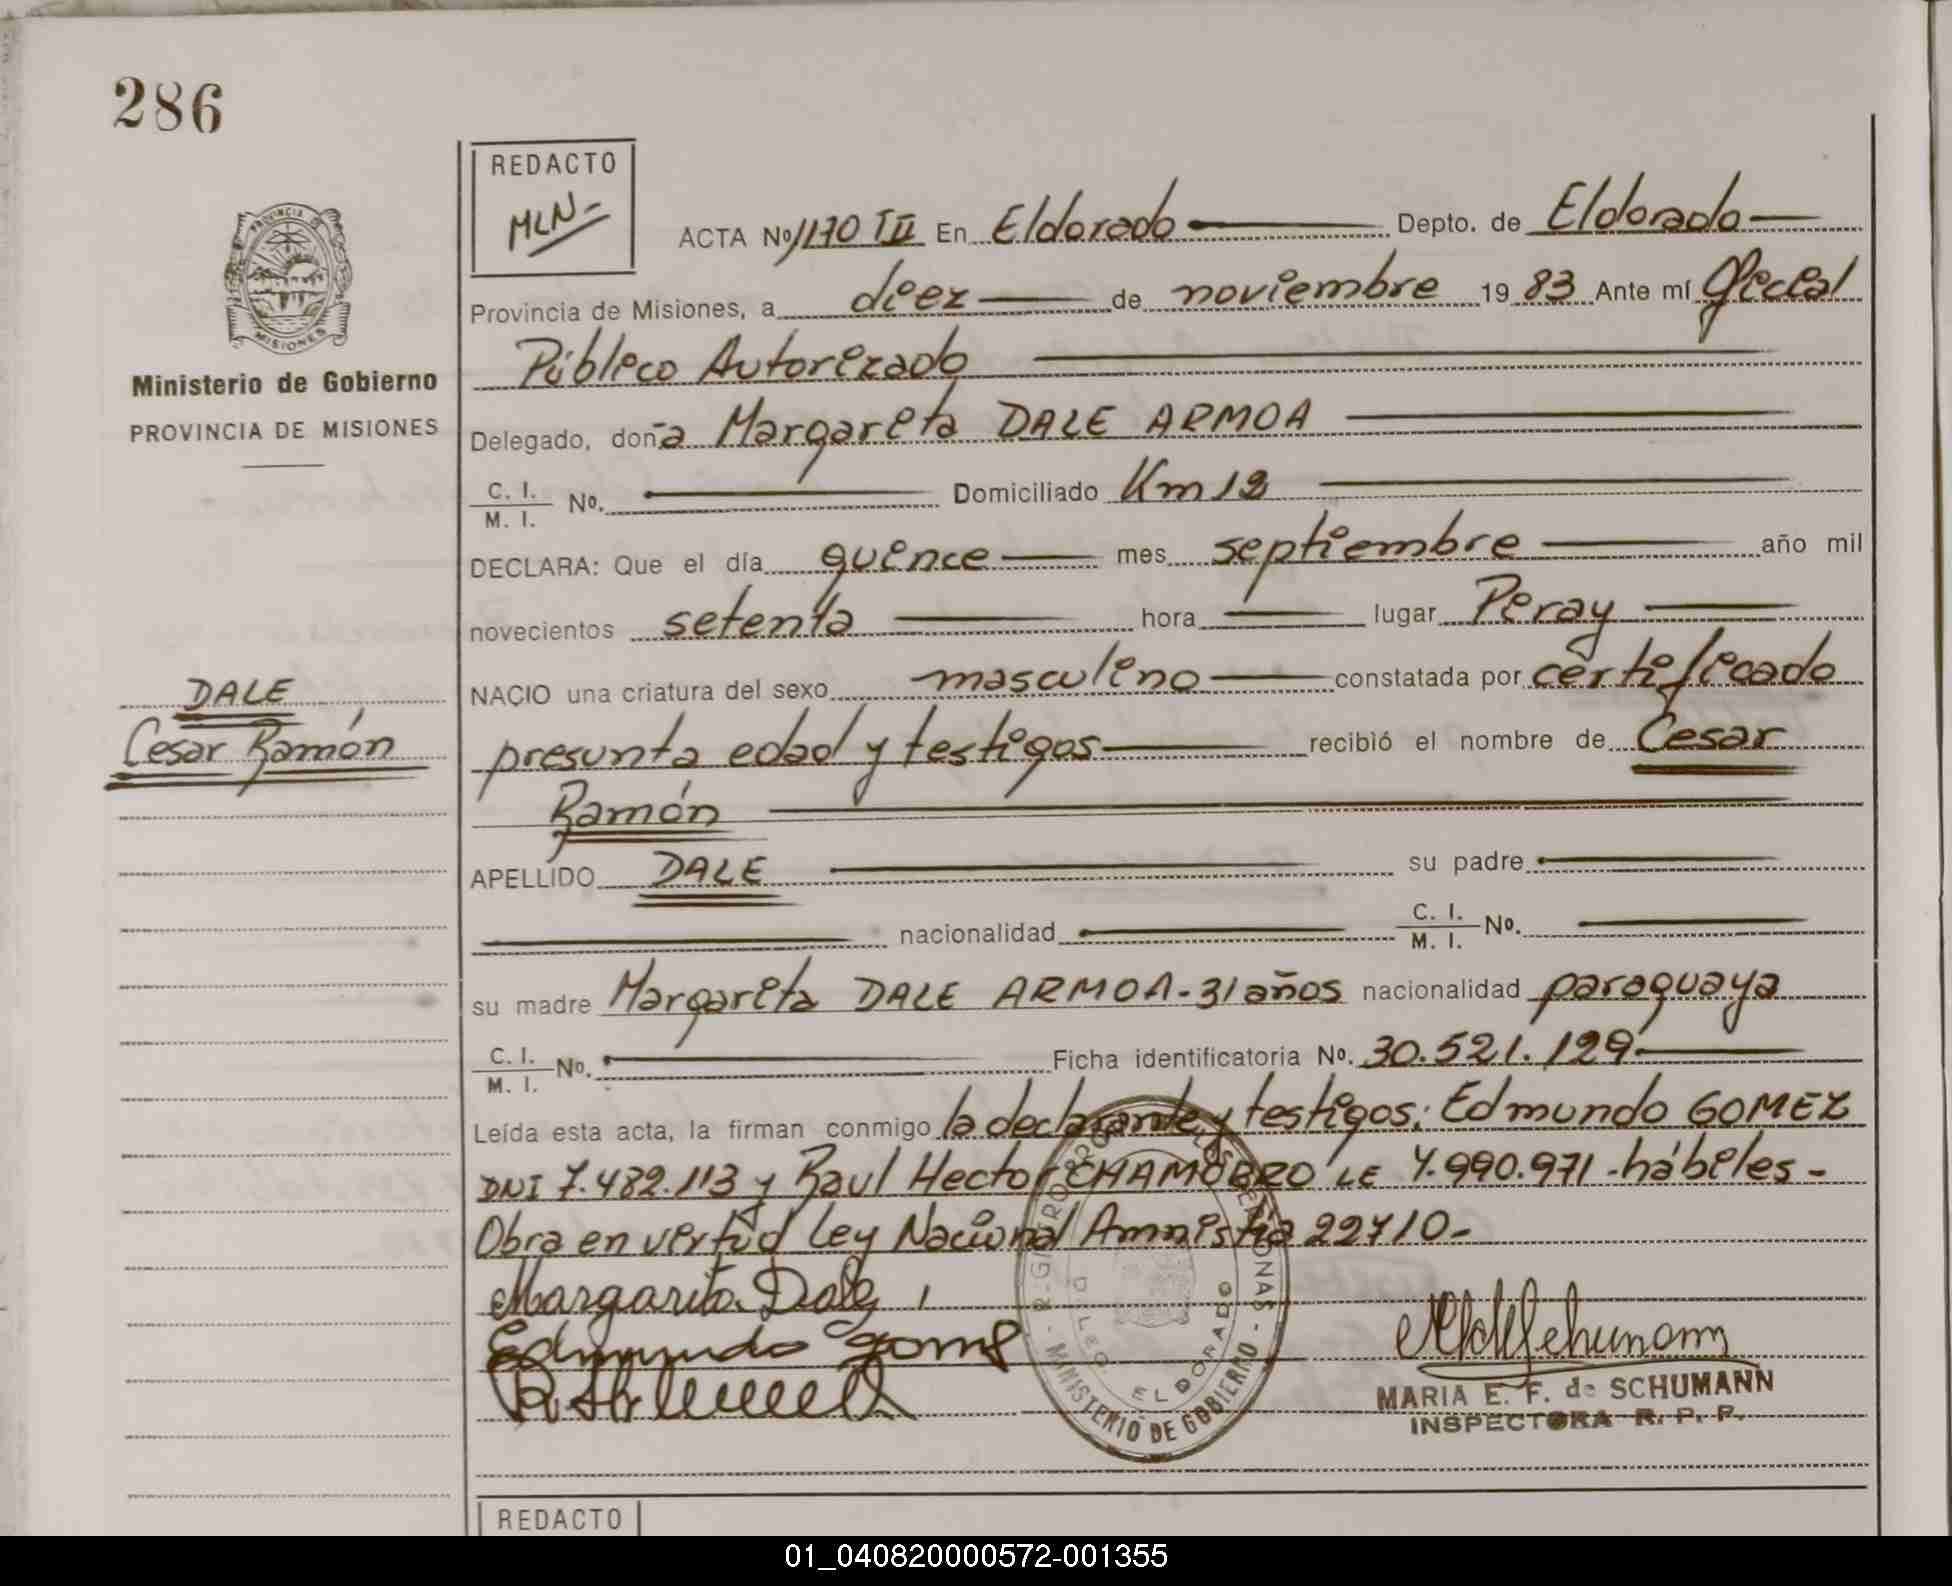 286
REDACTO
MLN-
ACTA Nº 1170 TII En Eldorado Depto. de Eldorado
Provincia de Misiones, a diez de noviembre 19 83 Ante mí Oficial
Público Autorizado
Delegado, doña Margarita DALE ARMOA
C. I.
M. I. Nº. Domiciliado Km 12
DECLARA: Que el día quince mes septiembre año mil
novecientos setenta hora lugar Piray
NACIO una criatura del sexo masculino constatada por certificado
presunta edad y testigos recibió el nombre de Cesar
Ramón
APELLIDO DALE su padre
nacionalidad C. I.
M. I. Nº.
su madre Margarita DALE ARMOA - 31 años nacionalidad paraguaya
C. I.
M. I. Nº. Ficha identificatoria Nº. 30.521.129-
Leída esta acta, la firman conmigo la declarante y testigos: Edmundo GOMEZ
DNI 7.482.113 y Raul Hector CHAMORRO LE 7.990.971 -hábiles-
Obra en virtud Ley Nacional Amnistía 22710-
Margarita Dale
Edmundo Gomez
MARIA E. F. de SCHUMANN
INSPECTORA R. P. P.
PROVINCIA DE
MISIONES
Ministerio de Gobierno
PROVINCIA DE MISIONES
DALE
Cesar Ramón
MINISTERIO DE GOBIERNO
ELDORADO
REDACTO
01_040820000572-001355